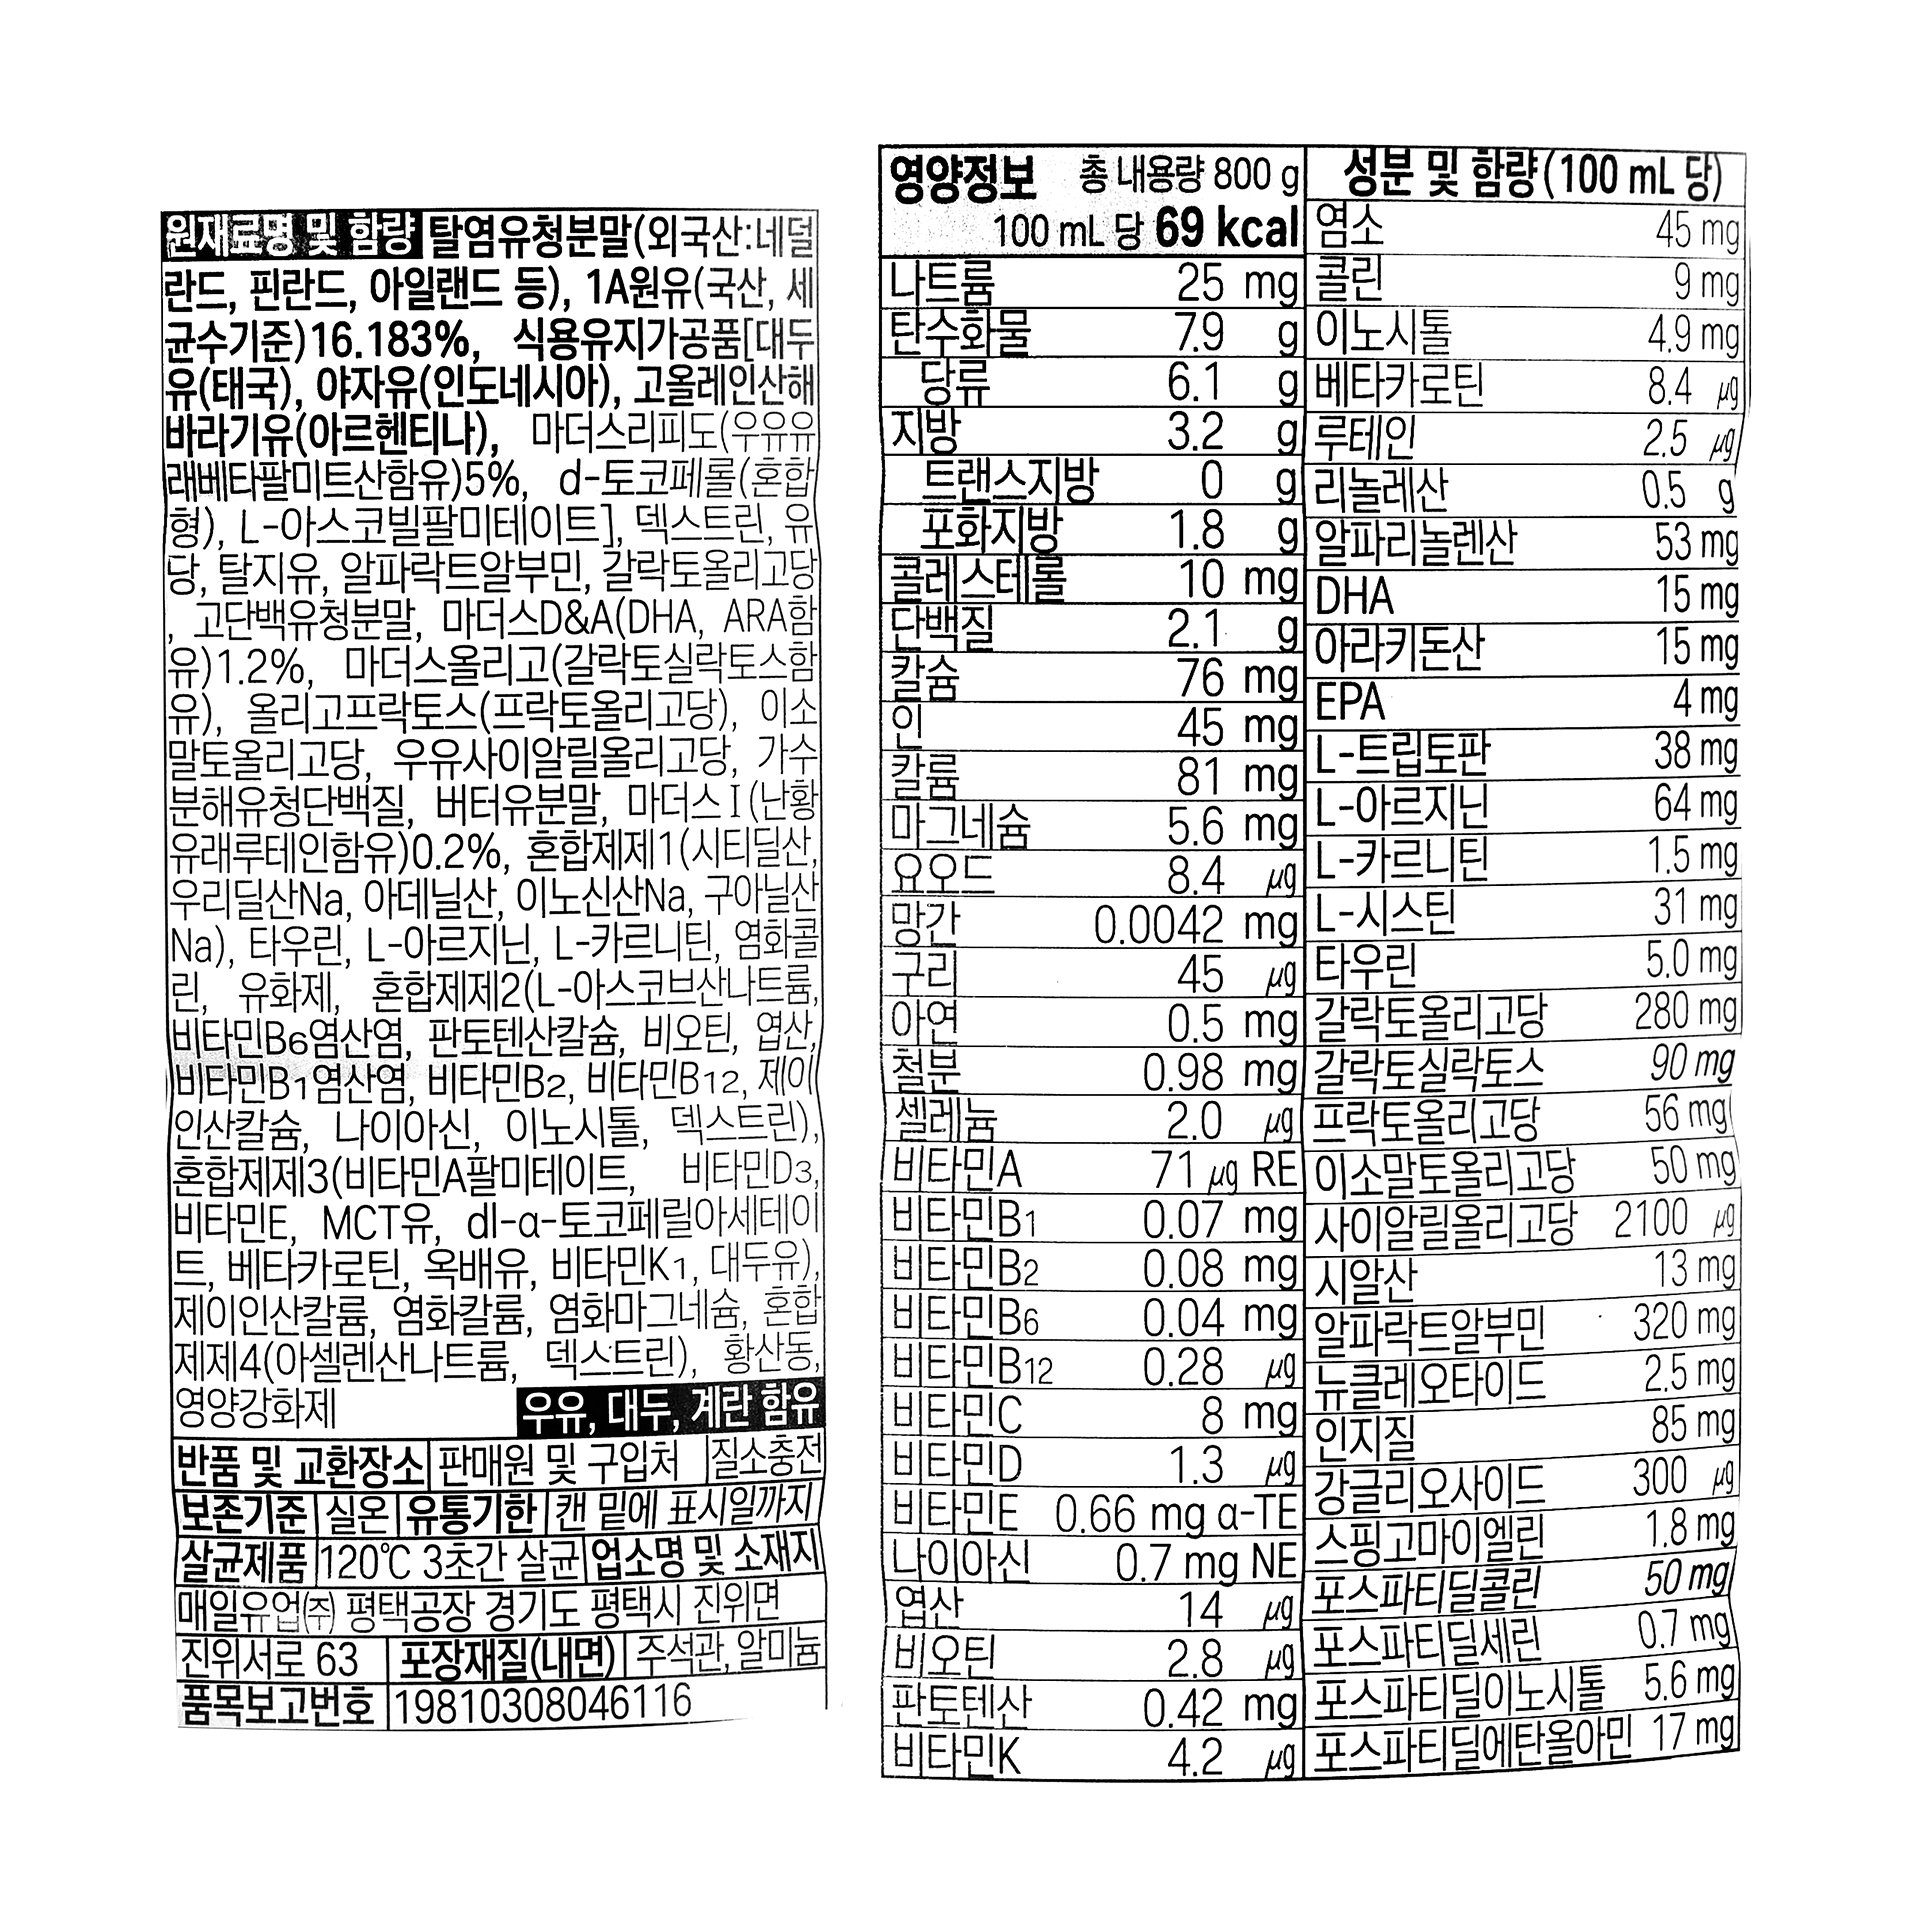 원재료명 및 함량 탈염유청분말(외국산:네덜
란드, 핀란드, 아일랜드 등), 1A원유(국산, 세
균수기준)16.183%, 식용유지가공품[대두
유(태국), 야자유(인도네시아), 고올레인산해
바라기유(아르헨티나), 마더스리피도(우유유
래베타팔미트산함유)5%, d-토코페롤(혼합
형), L-아스코빌팔미테이트], 덱스트린, 유
당, 탈지유, 알파락트알부민, 갈락토올리고당
, 고단백유청분말, 마더스D&A(DHA, ARA함
유)1.2%, 마더스올리고(갈락토실락토스함
유), 올리고프락토스(프락토올리고당), 이소
말토올리고당, 우유사이알릴올리고당, 가수
분해유청단백질, 버터유분말, 마더스I(난황
유래루테인함유)0.2%, 혼합제제1(시티딜산,
우리딜산Na, 아데닐산, 이노신산Na, 구아닐산
Na), 타우린, L-아르지닌, L-카르니틴, 염화콜
린, 유화제, 혼합제제2(L-아스코브산나트륨,
비타민B6염산염, 판토텐산칼슘, 비오틴, 엽산,
비타민B1염산염, 비타민B2, 비타민B12, 제이
인산칼슘, 나이아신, 이노시톨, 덱스트린),
혼합제제3(비타민A팔미테이트, 비타민D3,
비타민E, MCT유, dl-α-토코페릴아세테이
트, 베타카로틴, 옥배유, 비타민K1, 대두유),
제이인산칼륨, 염화칼륨, 염화마그네슘, 혼합
제제4(아셀렌산나트륨, 덱스트린), 황산동,
영양강화제 우유, 대두, 계란 함유
반품 및 교환장소 판매원 및 구입처 질소충전
보존기준 실온 유통기한 캔 밑에 표시일까지
살균제품 120℃ 3초간 살균 업소명 및 소재지
매일유업㈜ 평택공장 경기도 평택시 진위면
진위서로 63 포장재질(내면) 주석관, 알미늄
품목보고번호 19810308046116
영양정보 총 내용량 800 g
100 mL 당 69 kcal
나트륨 25 mg
탄수화물 7.9 g
당류 6.1 g
지방 3.2 g
트랜스지방 0 g
포화지방 1.8 g
콜레스테롤 10 mg
단백질 2.1 g
칼슘 76 mg
인 45 mg
칼륨 81 mg
마그네슘 5.6 mg
요오드 8.4 μg
망간 0.0042 mg
구리 45 μg
아연 0.5 mg
철분 0.98 mg
셀레늄 2.0 μg
비타민A 71 μg RE
비타민B1 0.07 mg
비타민B2 0.08 mg
비타민B6 0.04 mg
비타민B12 0.28 μg
비타민C 8 mg
비타민D 1.3 μg
비타민E 0.66 mg α-TE
나이아신 0.7 mg NE
엽산 14 μg
비오틴 2.8 μg
판토텐산 0.42 mg
비타민K 4.2 μg
성분 및 함량(100 mL 당)
염소 45 mg
콜린 9 mg
이노시톨 4.9 mg
베타카로틴 8.4 μg
루테인 2.5 μg
리놀레산 0.5 g
알파리놀렌산 53 mg
DHA 15 mg
아라키돈산 15 mg
EPA 4 mg
L-트립토판 38 mg
L-아르지닌 64 mg
L-카르니틴 1.5 mg
L-시스틴 31 mg
타우린 5.0 mg
갈락토올리고당 280 mg
갈락토실락토스 90 mg
프락토올리고당 56 mg
이소말토올리고당 50 mg
사이알릴올리고당 2100 μg
시알산 13 mg
알파락트알부민 320 mg
뉴클레오타이드 2.5 mg
인지질 85 mg
강글리오사이드 300 μg
스핑고마이엘린 1.8 mg
포스파티딜콜린 50 mg
포스파티딜세린 0.7 mg
포스파티딜이노시톨 5.6 mg
포스파티딜에탄올아민 17 mg